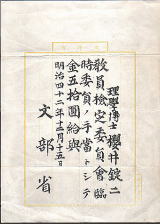 理學博士櫻井錠二
教員檢定委員會臨
時委員ノ手當トシテ
金五拾圓給與
明治四十二年十二月十五日
文部省